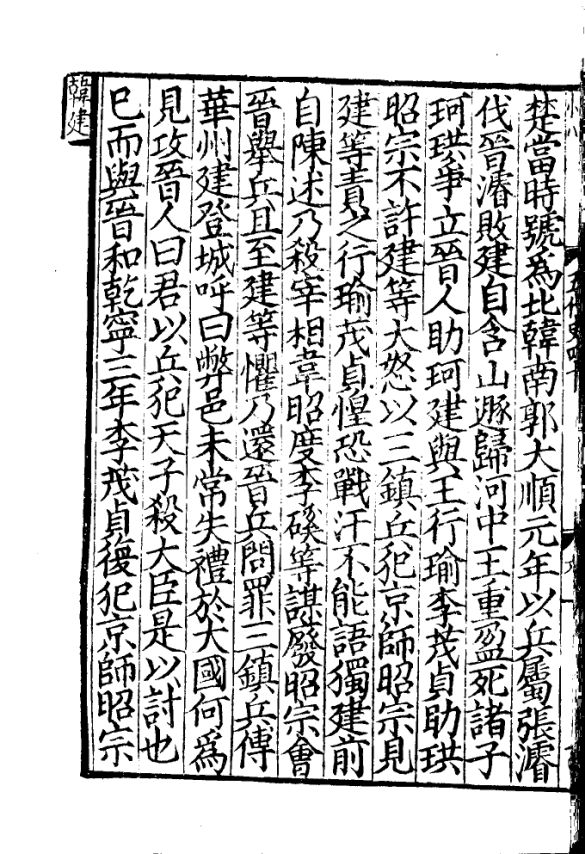 楚當時號爲北韓南郭大順元年以兵屬張濬
伐晉濬敗建自含山遯歸河中王重盈死諸子
珂珙爭立晉人助珂建與王行瑜李茂貞助珙
昭宗不許建等大怒以三鎮兵犯京師昭宗見
建等責之行瑜茂貞惶恐戰汗不能語獨建前
自陳述乃殺宰相韋昭度李磎等謀廢昭宗會
晉舉兵且至建等懼乃還晉兵問罪三鎮兵傅
華州建登城呼曰弊邑未常失禮於大國何爲
見攻晉人曰君以兵犯天子殺大臣是以討也
已而與晉和乾寧三年李茂貞復犯京師昭宗
韓建